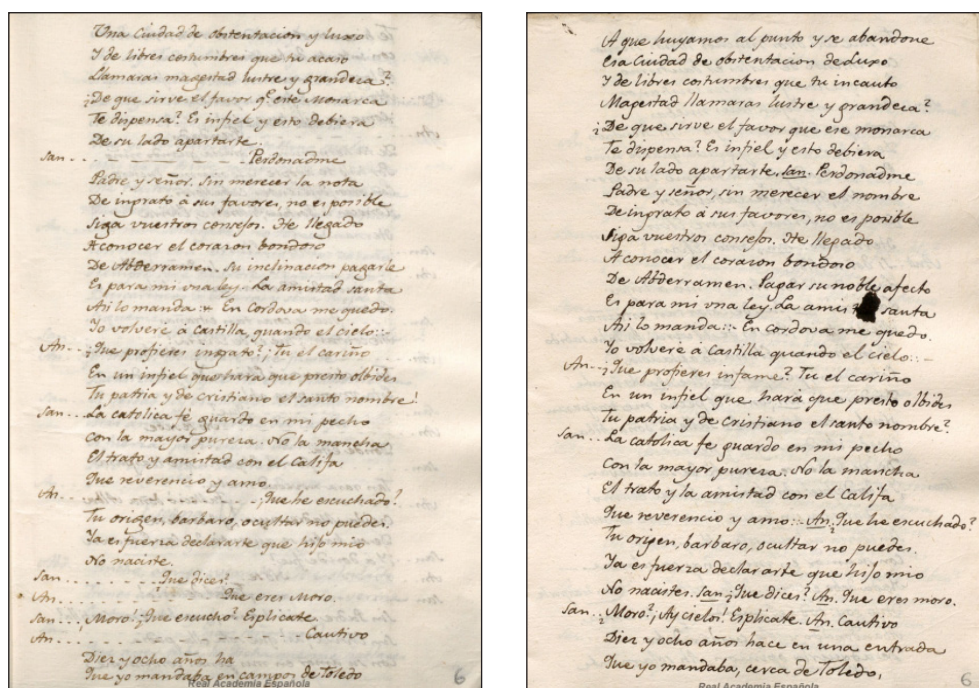 Una Ciudad de obstentacion y luxo
Y de libres costumbres que tu acaso
Llamaras magestad lustre y grandeca?
¿De que sirve el favor q.e este Monarca
Te dispensa? Es infiel y esto debiera
De su lado apartarte.
San. . . . . . . . . . . . . Perdonadme
Padre y señor, sin merecer la nota
De ingrato à sus favores, no es posible
Siga vuestros consejos. He llegado
A conocer el corazon bondoso
De Abderramen. Su inclinacion pagarle
Es para mi una ley. La amistad santa
Asi lo manda :: En Cordova me quedo.
Yo volverè à Castilla, quando el cielo::
An... ¿Que profieres ingrato? ¡Tu el cariño
En un infiel que hara que presto olbides
Tu patria y de cristiano el santo nombre!
San... La catolica fè guardo en mi pecho
con la mayor pureza. No la mancha
El trato y amistad con el Califa
Que reverencio y amo
An. . . . . . . . . . . . . ¡Que he escuchado?
Tu origen, barbaro, ocultar no puedes.
Ya es fuerza declararte que hijo mio
No naciste.
San. . . . . . . ¿Que dices?
An. . . . . . . . . . . . . Que eres Moro.
San... ¡Moro! ¿Que escucho? Esplicate.
An. . . . . . . . . . . . . Cautivo
Diez y ocho años ha
Que yo mandaba en campos de Toledo
Real Academia Española
6
A que huyamos al punto y se abandone
Esa Ciudad de obstentacion de Luxo
Y de libres costumbres que tu incauto
Magestad llamaras lustre y grandeca?
¿De que sirve el favor que ese monarca
Te dispensa? Es infiel y esto debiera
De su lado apartarte. San. Perdonadme
Padre y señor, sin merecer el nombre
De ingrato à sus favores, no es posible
Siga vuestros consejos. He llegado
A conocer el corazon bondoso
De Abderramen. Pagar su noble afecto
Es para mi una ley. La amis santa
Asi lo manda :: En Cordova me quedo.
Yo volverè à Castilla quando el cielo ::
An... ¿Que profieres infame? Tu el cariño
En un infiel que harà que presto olbides
Tu patria y de cristiano el santo nombre?
San... La catolica fe guardo en mi pecho
Con la mayor pureza. No la mancha
El trato y la amistad con el Califa
Que reverencio y amo :: An. ¿Que he escuchado?
Tu origen, barbaro, ocultar no puedes.
Ya es fuerza declararte que hijo mio
No nacistes. San ¿Que dices? An. Que eres moro.
San... ¿Moro? ¡Ay cielos! Esplicate. An. Cautivo
Diez y ocho años hace en una entrada
Que yo mandaba, cerca de Toledo,
Real Academia Española
6